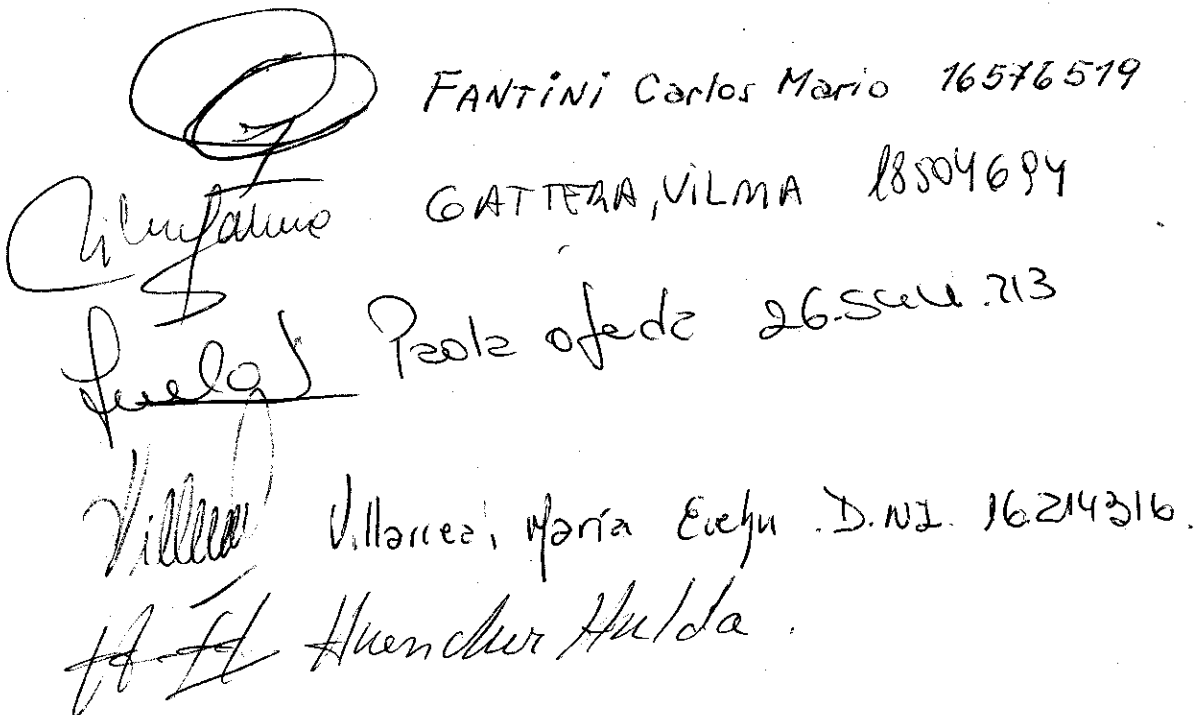 FANTiNi Carlos Mario 16576519
GATTERA, ViLMA 18504694
Paola ojeda 26.544.213
Villarreal, María Evelyn D.N.I. 16.214316.
Huenchur Hulda.